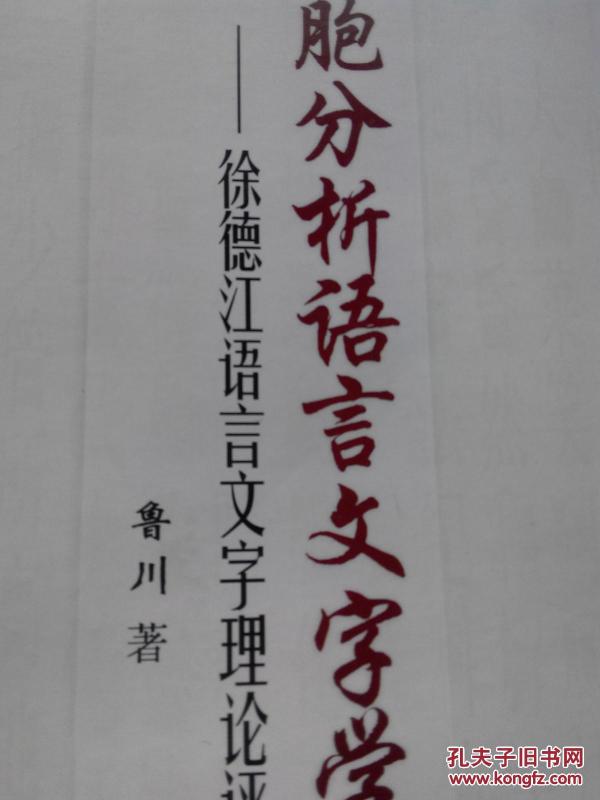 胞分析语言文字学
——徐德江语言文字理论评
鲁川 著
孔夫子旧书网
www.kongfz.com